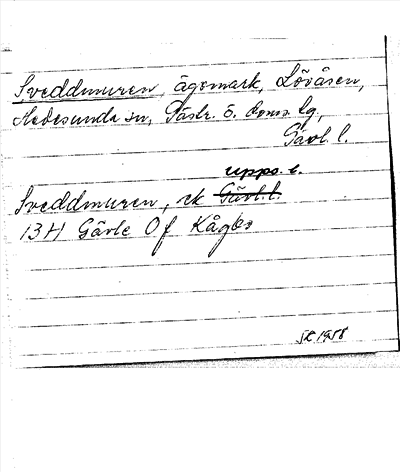 Sveddmuren, ägomark, Lövåsen,
Hedesunda sn, Gästr. ö. doms. lg,
Gävl. l.
upps. l.
Sveddmuren, rk Gävl. l.
13H Gävle 0f Kågbo
1958